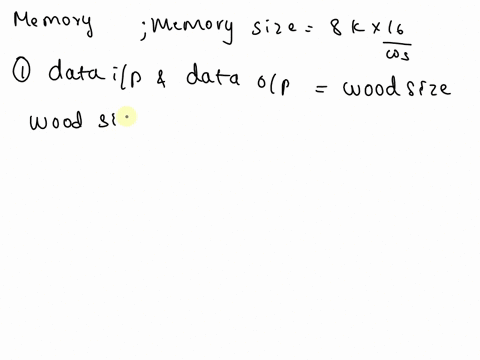 Memory ; Memory size = 8 K × 16
ws
① data i/p & data o/p = wood size
wood si